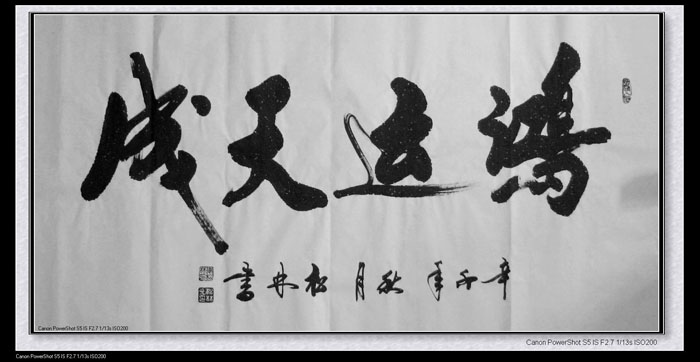 鸿运天成
辛卯年秋月松林書
Canon PowerShot S5 IS F2.7 1/13s ISO200
Canon PowerShot S5 IS F2.7 1/13s ISO200
Canon PowerShot S5 IS F2.7 1/13s ISO200